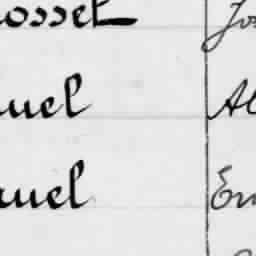 osset Jos
uel Al
uel Em